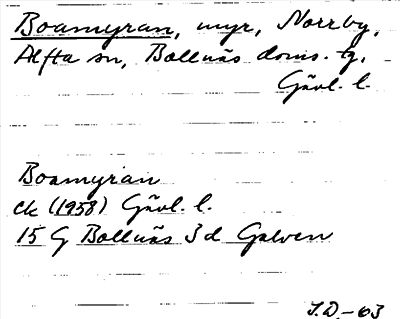 Boamyran, myr, Norrby,
Alfta sn, Bollnäs doms. tg.
Gävl. l.
Boamyran
ek (1958) Gävl. l.
15 G Bollnäs 3d Galven
J.D.-63